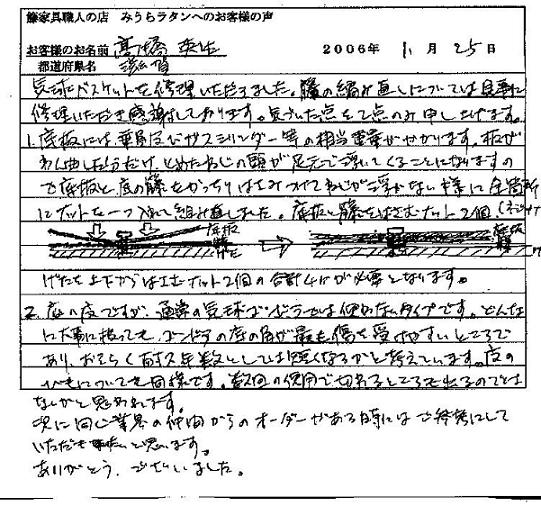 籐家具職人の店 みうらラタンへのお客様の声
お客様のお名前 高橋 2006年 11月25日
都道府県名 滋賀
気球バスケットを修理いただきました。籐の編み直しについては見事に
修理いただき感謝しております。気づいた点を2点のみ申し上げます。
1. 底板には乗員及びガスシリンダー等の相当重量がかかります。板が
わん曲した分だけ、とめたねじの頭が足元で浮いてくることになりますの
で底板と底の籐をがっちりはさみつけてねじが浮かない様に全箇所
にナットを一つ入れて組み直しました。底板と籐をはさむナット2個
底板
籐
底板
籐
げたを上下からはさむナット2個の合計4ケが必要となります。
2. 底の皮ですが、通常の気球ゴンドラでは使わないタイプです。どんな
に大事に扱っても、ゴンドラの底の角が最も傷を受けやすいところで
あり、おそらく耐久年数としては短くなるかと考えています。皮の
ひもについても同様です。数回の使用で切れるところも出るのでは
ないかと思われます。
次に同じ業界の仲間からのオーダーがある時にはご参考にして
いただきたいと思います。
ありがとうございました。